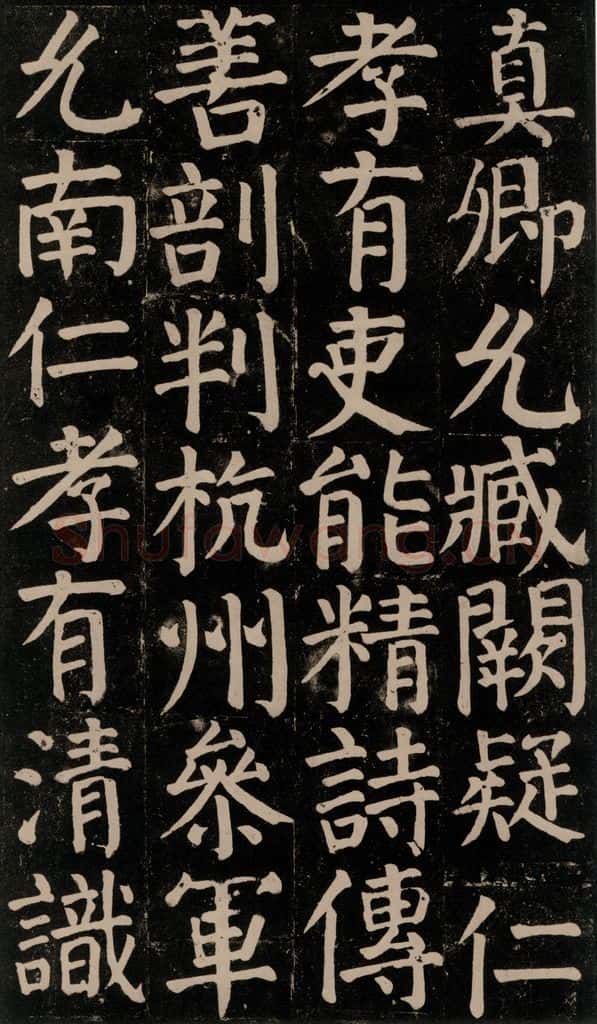 真卿允臧闕疑仁
孝有吏能精詩傳
善剖判杭州叅軍
允南仁孝有清識
Shufawang.CN